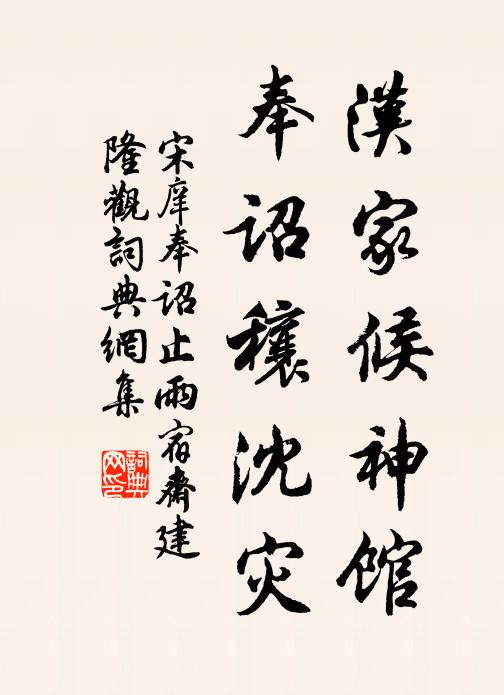 漢家候神館
奉詔穰沈灾
宋庠奉詔止雨宿齋建
隆觀詞典網集
詞典网印